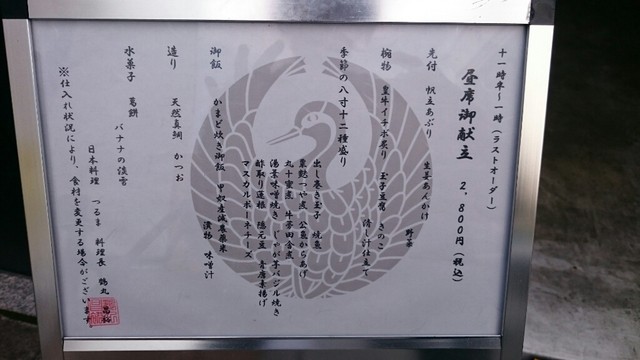 十一時半～一時（ラストオーダー）
昼席御献立 2,800円（税込）
先付 帆立あぶり 生姜あんかけ
野菜
椀物 里牛イチボ炙り 玉子豆腐 きのこ
清し汁仕立て
季節の八寸十二種盛り
出し巻き玉子 焼魚
粟麩つや煮 公魚からあげ
丸十蜜煮 牛蒡田舎煮
湯葉味噌焼き じゃが芋バジル焼き
酢取り蓮根 隠元豆 青唐素揚げ
マスカルポーネチーズ
御飯 かまど炊き御飯 甲奴産減農薬米
漬物 味噌汁
造り 天然真鯛 かつお
水菓子 葛餅
バナナの淡雪
日本料理 つるま 料理長 鶴丸
※仕入れ状況により、食材を変更する場合がございます。